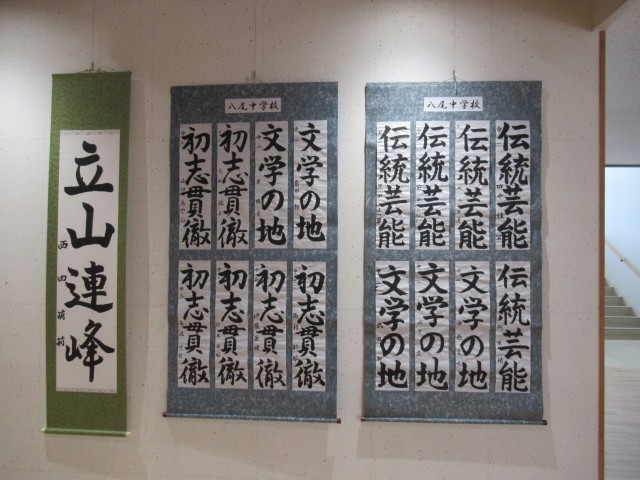 立山連峰
西田萌莉
八尾中学校
初志貫徹
初志貫徹
文学の地
文学の地
初志貫徹
初志貫徹
初志貫徹
初志貫徹
八尾中学校
伝統芸能
伝統芸能
伝統芸能
伝統芸能
文学の地
文学の地
文学の地
伝統芸能